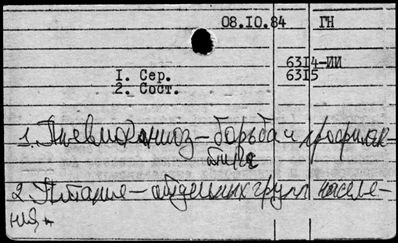 08.10.84 ГН
6314-ИИ
6315
1. Сер.
2. Сост.
1. Пневмокониоз – борьба и профилак-
тика
2. Питание – отдельных групп населе-
ния